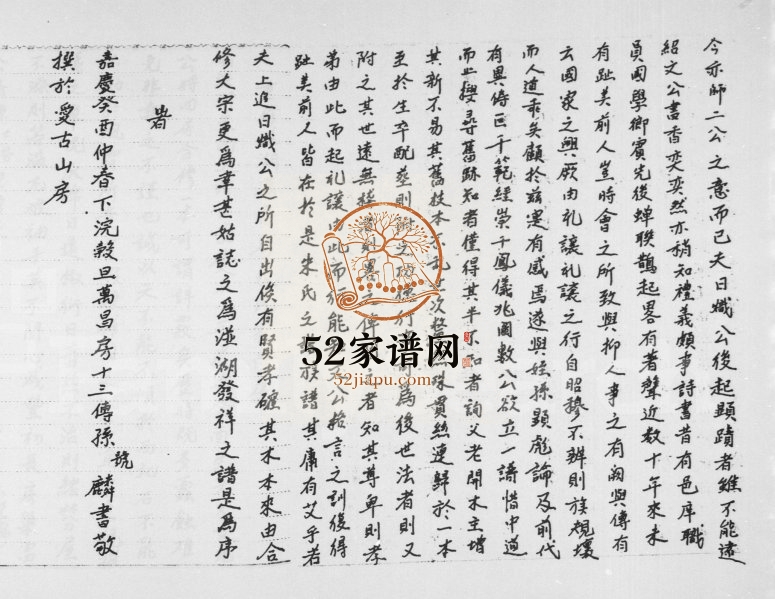 今亦師二公之意而已夫日熾公後起顯蹟者雖不能遠
紹文公書香奕奕然亦稍知禮義頗事詩書昔有邑庠職
員國學鄉賓先後蟬聯鵲起畧有著聲近数十年來未
有趾美前人豈時會之所致與抑人事之有闕與傳有
云國家之興厥由礼讓礼讓之行自昭穆不辨則族規壞
而人道乖矣顧於兹寔有感焉遂與姪孫顕彪論及前代
有異傳臣千範經崇千鳳儀兆圖數公欲立一譜惜中道
而止搜尋舊跡知者僅得其半不知者詢父老開木主增
其新不易其舊枝本不乱世次 珠貫絲連歸於一本
至於生卒配塟則 之 為後世法者則又
附之其世遠無 者知其尊卑則孝
弟由此而起礼讓由此而 能 文公格言之訓後得
趾美前人皆在於是朱氏之 族譜其庸有艾乎若
夫上追日熾公之所自出俟有賢孝確其木本來由合
修大宗更為幸甚姑誌之為湴湖發祥之譜是為序
峕
嘉慶癸酉仲春下浣榖旦萬昌房十三傳孫號麟書敬
撰於愛古山房
52家谱网
52jiapu.com